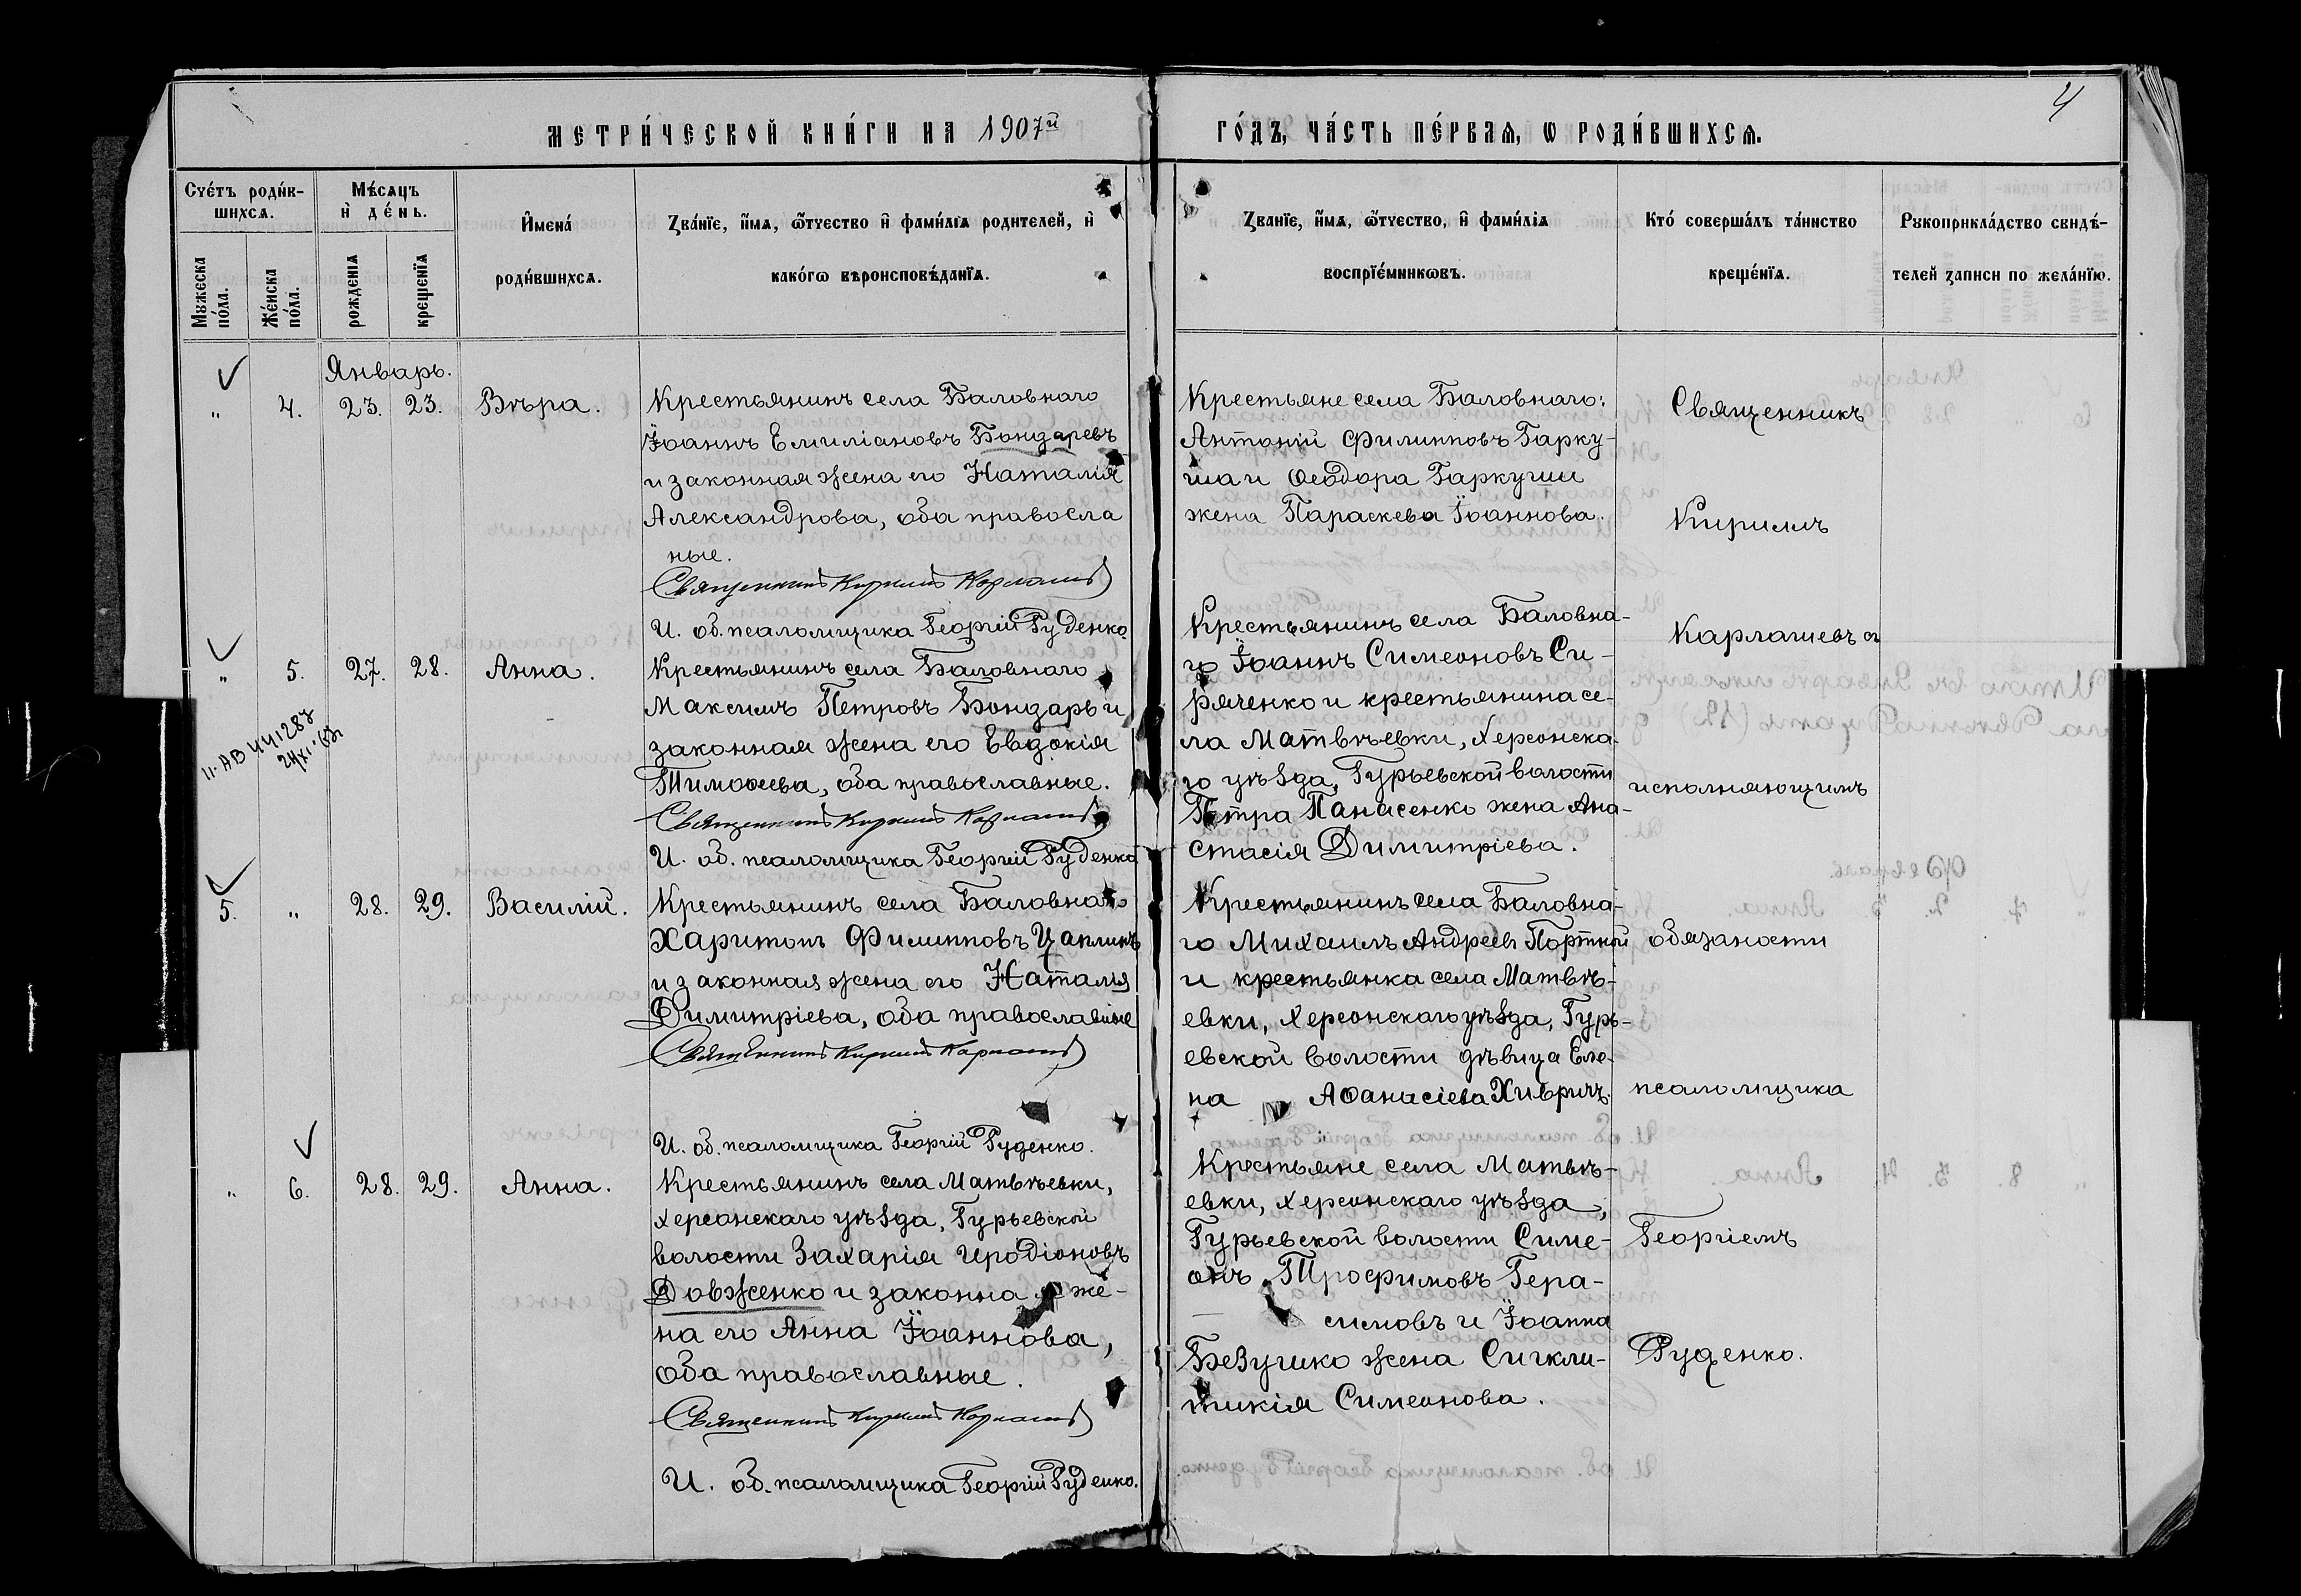 МЕТРИ́ЧЕСКОЙ КНИ́ГИ НА 1907й
ГО́ДЪ, ЧА́СТЬ ПЕ́РВАѦ, Ѡ РОДИ́ВШИХСѦ.
4
Сче́тъ роди́в-
шихсѧ.
Му́жеска
по́ла.
Же́нска
по́ла.
Мѣ́сѧцъ
и҆ де́нь.
рожденїѧ
крещенїѧ
И҆мена́
роди́вшихсѧ.
Зва́нїе, и҆́мѧ, ѻ҆́тчество и҆ фами́лїѧ родителей, и҆
како́гѡ вѣроисповѣ́данїѧ.
Зва́нїе, и҆́мѧ, ѻ҆́тчество, и҆ фами́лїѧ
воспрїе́мникѡвъ.
Кто́ соверша́лъ та́инство
креще́нїѧ.
Рꙋкоприкла́дство свидѣ́-
телей записи по жела́нїю.
Январь.
" 4. 23. 23. Вѣра.
Крестьянинъ села Баловнаго
Іоаннъ Емиліановъ Бондаревъ
и законная жена его Наталія
Александрова, оба правосла
ные.
Священникъ Кириллъ Карлашевъ
И. об. псаломщика Георгій Руденко
Крестьяне села Баловнаго:
Антоній Филипповъ Гарку-
ша и Ѳеодора Гаркуши
жена Параскева Іоаннова.
" 5. 27. 28. Анна.
Крестьянинъ села Баловнаго
Максимъ Петровъ Бондарь и
законная жена его Евдокія
Тимоѳеева, оба православные.
Священникъ Кириллъ Карлашевъ
И. об. псаломщика Георгій Руденко
II-АВ 441287
24/XI-63г
Крестьянинъ села Баловна-
го Іоаннъ Симеоновъ Си-
ряченко и крестьянина се-
ла Матвѣевки, Херсонска-
го уѣзда, Гурьевской волости
Петра Панасенко жена Ана-
стасія Димитріева.
5. " 28. 29. Василій.
Крестьянинъ села Баловнаго
Харитонъ Филипповъ Цаплинъ
и законная жена его Наталія
Димитріева, оба православные
Священникъ Кириллъ Карлашевъ
И. об. псаломщика Георгій Руденко.
Крестьянинъ села Баловна-
го Михаилъ Андреевъ Портной
и крестьянка села Матвѣ-
евки, Херсонскаго уѣзда, Гурь-
евской волости дѣвица Еле-
на Аѳанасіева Хивричъ.
" 6. 28. 29. Анна.
Крестьянинъ села Матвѣевки,
Херсонскаго уѣзда, Гурьевской
волости Захарія Иродіоновъ
Довженко и законная же-
на его Анна Іоаннова,
оба православные.
Священникъ Кириллъ Карлашевъ
И. об. псаломщика Георгій Руденко.
Крестьяне села Матвѣ-
евки, Херсонскаго уѣзда,
Гурьевской волости Симе-
онъ Трофимовъ Гера-
симовъ и Іоанна
Безушко жена Сигкли-
тикія Симеонова.
Священникъ
Кириллъ
Карлашевъ съ
исполняющимъ
обязаности
псаломщика
Георгіемъ
Руденко.